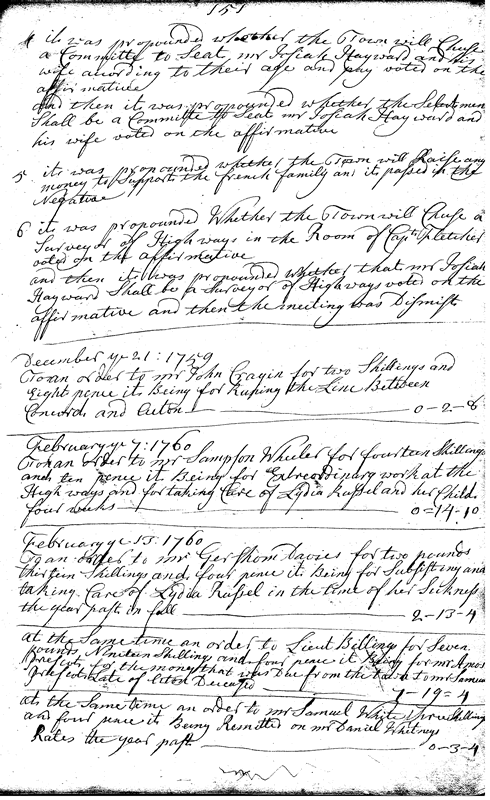 151
4 it was propounded whether the Town will Chuse
a Committe to Seat mr Josiah Hayward and his
wife acording to their age and pay voted on the
affirmative
and then it was propounded whether the Selectmen
Shall be a Committe to Seat mr Josiah Hayward and
his wife voted on the affirmative
5 it was propounded whether the Town will Raise any
money to Support the french family and it passed in the
Negative
6 it was propounded Whether the Town will Chuse a
Surveyor of High ways in the Room of Capt Fletcher
voted on the affirmative
and then it was propounded whether that mr Josiah
Hayward Shall be a Surveyor of Highways voted on the
affirmative and then the meeting was Dismist
December ye 21: 1759
To an order to mr John Cragin for two Shillings and
Eight pence it Being for Runing the Line Between
Concord and Acton 0-2-8
February ye 7: 1760
To an order to mr Sampson Wheeler for fourteen Shillings
and ten pence it Being for Extreordinary work at the
High ways and for taking Care of Lydia Russel and her Child
four weeks 0=14-10
February ye 13: 1760
To an order to mr Gershom Davies for two pounds
thirteen Shillings and four pence it Being for Subsisting and
taking Care of Lydia Russel in the time of her Sickness
the year past in full 2-13-4
at the Same time an order to Lieut Billings for Seven
pounds Nineteen Shillings and four pence it Being for mr Amos
Prescut for the money that was Due from the to mr Samuel
Prescut Late of Acton Deceased 7-19=4
at the Same time an order to mr Samuel White three Shillings
and four pence it Being Remitted on mr Daniel Whitneys
Rates the year past 0-3-4